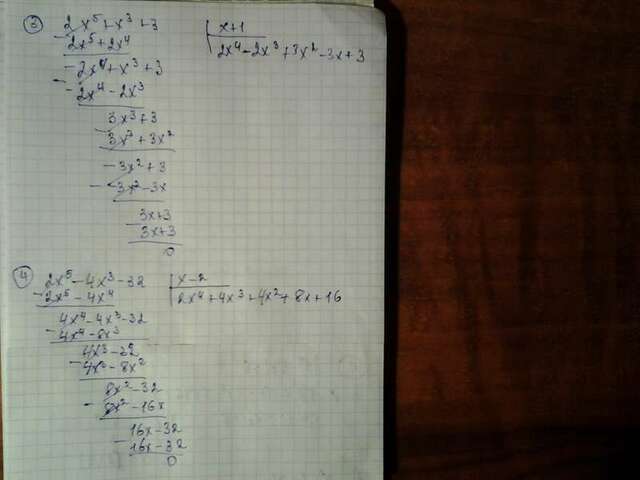 ③ 2x⁵+x³+3 | x+1
- 2x⁵+2x⁴ | 2x⁴-2x³+3x²-3x+3
-2x⁴+x³+3
- -2x⁴-2x³
3x³+3
- 3x³+3x²
-3x²+3
- -3x²-3x
3x+3
- 3x+3
0
④ 2x⁵-4x³-32 | x-2
- 2x⁵-4x⁴ | 2x⁴+4x³+4x²+8x+16
4x⁴-4x³-32
- 4x⁴-8x³
4x³-32
- 4x³-8x²
8x²-32
- 8x²-16x
16x-32
- 16x-32
0